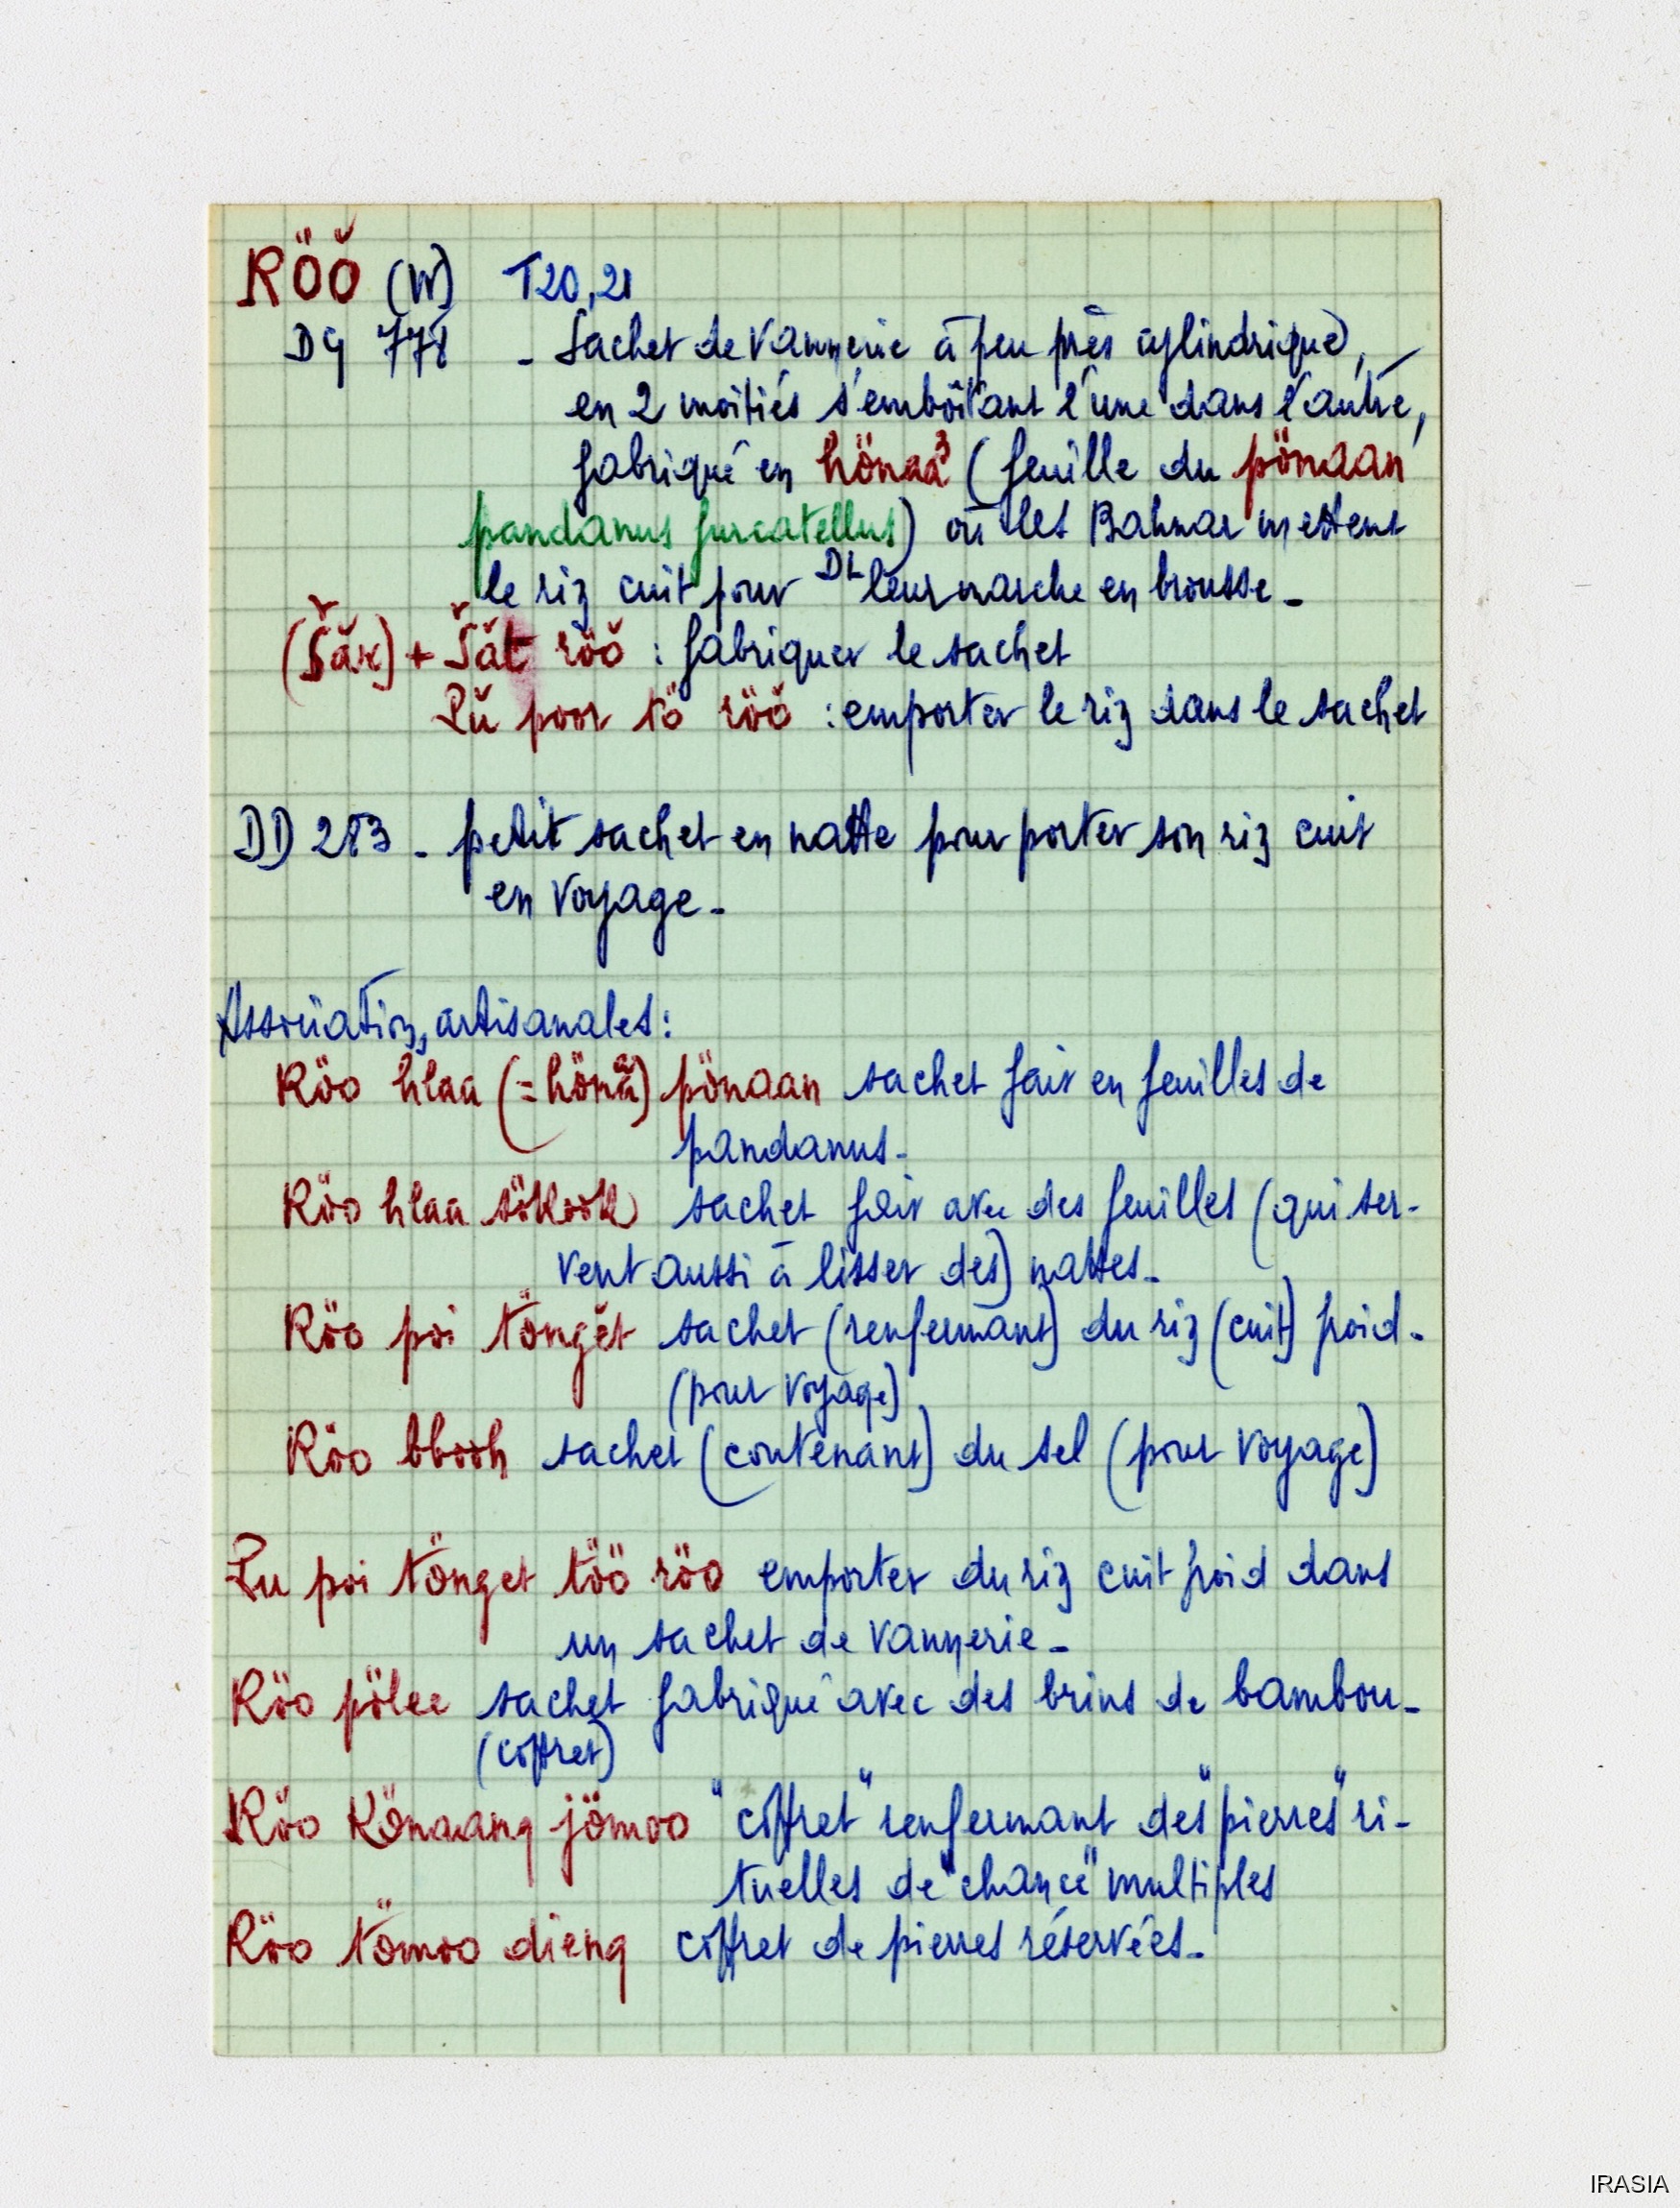 RÖŎ (W) T20,21
DG 778 - Sachet de vannerie à peu près cylindrique,
en 2 moitiés s'emboîtant l'une dans l'autre,
fabriqué en hönaa (feuille du pönaan
pandanus furcatellus) où les Bahnar mettent
le riz cuit pour DL leur marche en brousse -
+ röŏ : fabriquer le sachet
poor tö röŏ : emporter le riz dans le sachet
DD 283 - petit sachet en natte pour porter son riz cuit
en voyage -
Associations artisanales :
Röo hlaa (= hönă) pönaan sachet fait en feuilles de
pandanus -
Röo hlaa sökook sachet fait avec des feuilles (qui ser-
vent aussi à lisser des) nattes -
Röo poi töngĕt sachet (renfermant) du riz (cuit) froid -
(pour voyage)
Röo bbooh sachet (contenant) du sel (pour voyage)
poi tönget töö röo emporter du riz cuit froid dans
un sachet de vannerie -
Röo pölee sachet fabriqué avec des brins de bambou -
(coffret)
Röo Könaang jömoo "coffret" renfermant des "pierres" ri-
tuelles de "chance" multiples
Röo tömoo dieng coffret de pierres réservées -
IRASIA